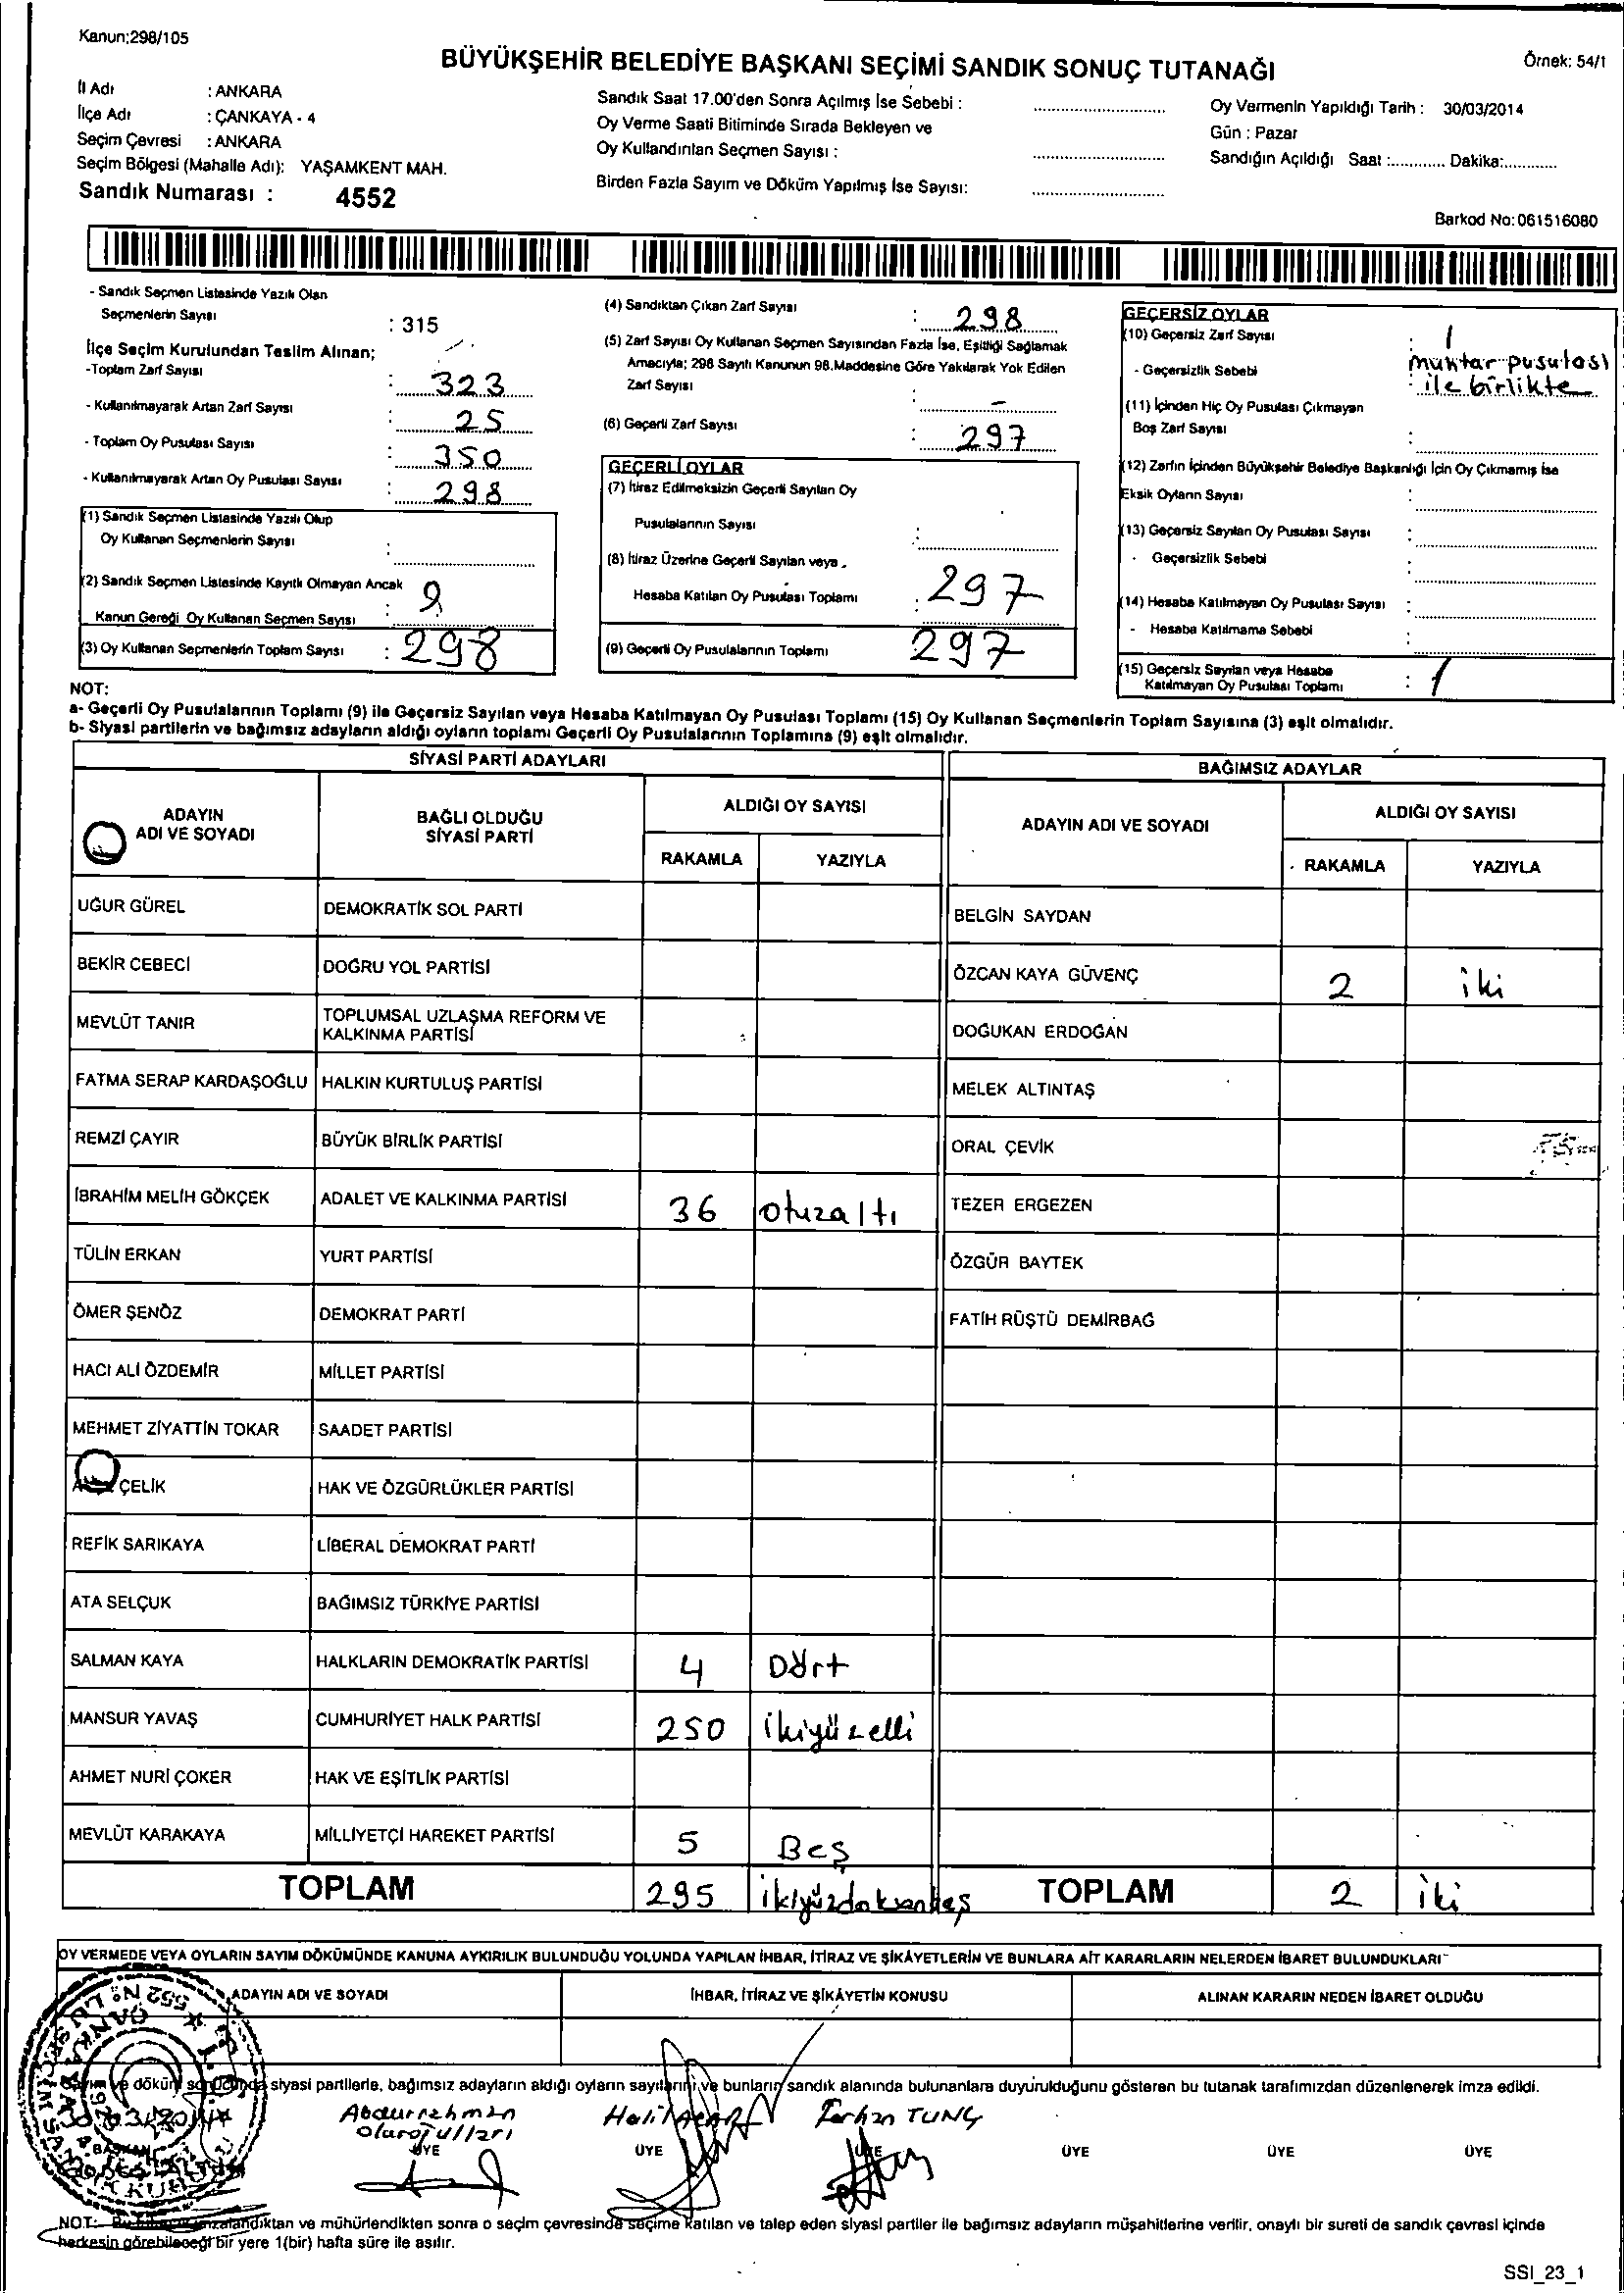 Kanun;298/105
BÜYÜKŞEHİR BELEDİYE BAŞKANI SEÇİMİ SANDIK SONUÇ TUTANAĞI
Örnek: 54/1
İl Adı : ANKARA
İlçe Adı : ÇANKAYA - 4
Seçim Çevresi : ANKARA
Seçim Bölgesi (Mahalle Adı): YAŞAMKENT MAH.
Sandık Numarası : 4552
Sandık Saat 17.00'den Sonra Açılmış İse Sebebi :
Oy Verme Saati Bitiminde Sırada Bekleyen ve
Oy Kullandırılan Seçmen Sayısı :
Birden Fazla Sayım ve Döküm Yapılmış İse Sayısı:
Oy Vermenin Yapıldığı Tarih : 30/03/2014
Gün : Pazar
Sandığın Açıldığı Saat :............ Dakika:............
Barkod No: 061516080
- Sandık Seçmen Listesinde Yazılı Olan
Seçmenlerin Sayısı : 315
İlçe Seçim Kurulundan Teslim Alınan;
-Toplam Zarf Sayısı : 323
- Kullanılmayarak Artan Zarf Sayısı : 25
- Toplam Oy Pusulası Sayısı : 350
- Kullanılmayarak Artan Oy Pusulası Sayısı : 298
(1) Sandık Seçmen Listesinde Yazılı Olup
Oy Kullanan Seçmenlerin Sayısı :
(2) Sandık Seçmen Listesinde Kayıtlı Olmayan Ancak
Kanun Gereği Oy Kullanan Seçmen Sayısı :
(3) Oy Kullanan Seçmenlerin Toplam Sayısı : 298
(4) Sandıktan Çıkan Zarf Sayısı : 298
(5) Zarf Sayısı Oy Kullanan Seçmen Sayısından Fazla İse, Eşitliği Sağlamak
Amacıyla; 298 Sayılı Kanunun 98.Maddesine Göre Yakılarak Yok Edilen
Zarf Sayısı : -
(6) Geçerli Zarf Sayısı : 297
GEÇERLİ OYLAR
(7) İtiraz Edilmeksizin Geçerli Sayılan Oy
Pusulalarının Sayısı :
(8) İtiraz Üzerine Geçerli Sayılan veya
Hesaba Katılan Oy Pusulası Toplamı : 297
(9) Geçerli Oy Pusulalarının Toplamı 297
GEÇERSİZ OYLAR
(10) Geçersiz Zarf Sayısı : 1
- Geçersizlik Sebebi : muhtar pusulası
ile birlikte
(11) İçinden Hiç Oy Pusulası Çıkmayan
Boş Zarf Sayısı :
(12) Zarfın İçinden Büyükşehir Belediye Başkanlığı İçin Oy Çıkmamış İse
Eksik Oyların Sayısı :
(13) Geçersiz Sayılan Oy Pusulası Sayısı :
- Geçersizlik Sebebi :
(14) Hesaba Katılmayan Oy Pusulası Sayısı :
- Hesaba Katılmama Sebebi :
(15) Geçersiz Sayılan veya Hesaba
Katılmayan Oy Pusulası Toplamı : 1
NOT:
a- Geçerli Oy Pusulalarının Toplamı (9) ile Geçersiz Sayılan veya Hesaba Katılmayan Oy Pusulası Toplamı (15) Oy Kullanan Seçmenlerin Toplam Sayısına (3) eşit olmalıdır.
b- Siyasi partilerin ve bağımsız adayların aldığı oyların toplamı Geçerli Oy Pusulalarının Toplamına (9) eşit olmalıdır.
SİYASİ PARTİ ADAYLARI
BAĞIMSIZ ADAYLAR
ADAYIN
ADI VE SOYADI
BAĞLI OLDUĞU
SİYASİ PARTİ
ALDIĞI OY SAYISI
RAKAMLA YAZIYLA
ADAYIN ADI VE SOYADI
ALDIĞI OY SAYISI
RAKAMLA YAZIYLA
UĞUR GÜREL DEMOKRATİK SOL PARTİ BELGİN SAYDAN
BEKİR CEBECİ DOĞRU YOL PARTİSİ ÖZCAN KAYA GÜVENÇ 2 iki
MEVLÜT TANIR TOPLUMSAL UZLAŞMA REFORM VE
KALKINMA PARTİSİ DOĞUKAN ERDOĞAN
FATMA SERAP KARDAŞOĞLU HALKIN KURTULUŞ PARTİSİ MELEK ALTINTAŞ
REMZİ ÇAYIR BÜYÜK BİRLİK PARTİSİ ORAL ÇEVİK
İBRAHİM MELİH GÖKÇEK ADALET VE KALKINMA PARTİSİ 36 otuzaltı TEZER ERGEZEN
TÜLİN ERKAN YURT PARTİSİ ÖZGÜR BAYTEK
ÖMER ŞENÖZ DEMOKRAT PARTİ FATİH RÜŞTÜ DEMİRBAĞ
HACI ALİ ÖZDEMİR MİLLET PARTİSİ
MEHMET ZİYATTİN TOKAR SAADET PARTİSİ
ÇELİK HAK VE ÖZGÜRLÜKLER PARTİSİ
REFİK SARIKAYA LİBERAL DEMOKRAT PARTİ
ATA SELÇUK BAĞIMSIZ TÜRKİYE PARTİSİ
SALMAN KAYA HALKLARIN DEMOKRATİK PARTİSİ 4 Dört
MANSUR YAVAŞ CUMHURİYET HALK PARTİSİ 250 ikiyüzelli
AHMET NURİ ÇOKER HAK VE EŞİTLİK PARTİSİ
MEVLÜT KARAKAYA MİLLİYETÇİ HAREKET PARTİSİ 5 Beş
TOPLAM 295 ikiyüzdoksanbeş TOPLAM 2 iki
OY VERMEDE VEYA OYLARIN SAYIM DÖKÜMÜNDE KANUNA AYKIRILIK BULUNDUĞU YOLUNDA YAPILAN İHBAR, İTİRAZ VE ŞİKÂYETLERİN VE BUNLARA AİT KARARLARIN NELERDEN İBARET BULUNDUKLARI
ADAYIN ADI VE SOYADI İHBAR, İTİRAZ VE ŞİKÂYETİN KONUSU ALINAN KARARIN NEDEN İBARET OLDUĞU
ve döküm sonucunda siyasi partilerle, bağımsız adayların aldığı oyların sayılarını ve bunların sandık alanında bulunanlara duyurulduğunu gösteren bu tutanak tarafımızdan düzenlenerek imza edildi.
Abdurrahman Halil Ferhan TUNÇ
ÜYE ÜYE ÜYE ÜYE ÜYE ÜYE
BAŞKAN
NOT: imzalandıktan ve mühürlendikten sonra o seçim çevresinde seçime katılan ve talep eden siyasi partiler ile bağımsız adayların müşahitlerine verilir, onaylı bir sureti de sandık çevresi içinde
herkesin görebileceği bir yere 1(bir) hafta süre ile asılır.
SSI_23_1